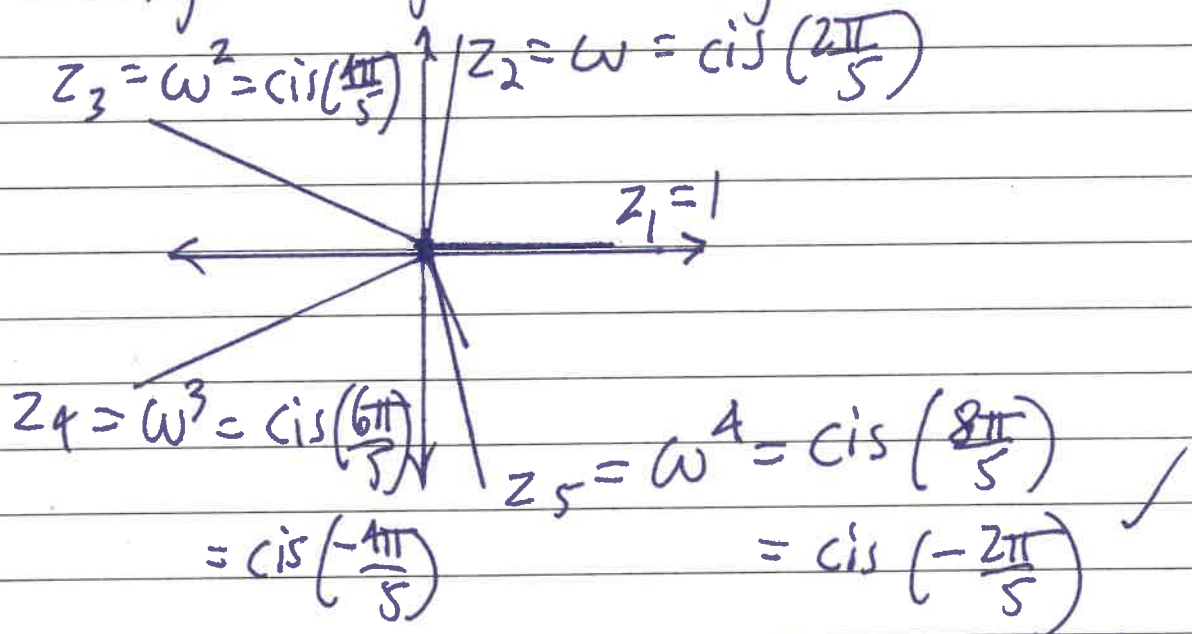 z₂ = ω = cis(2π/5)
z₃ = ω² = cis(4π/5)
z₁ = 1
z₄ = ω³ = cis(6π/5)
= cis(-4π/5)
z₅ = ω⁴ = cis(8π/5)
= cis(-2π/5)